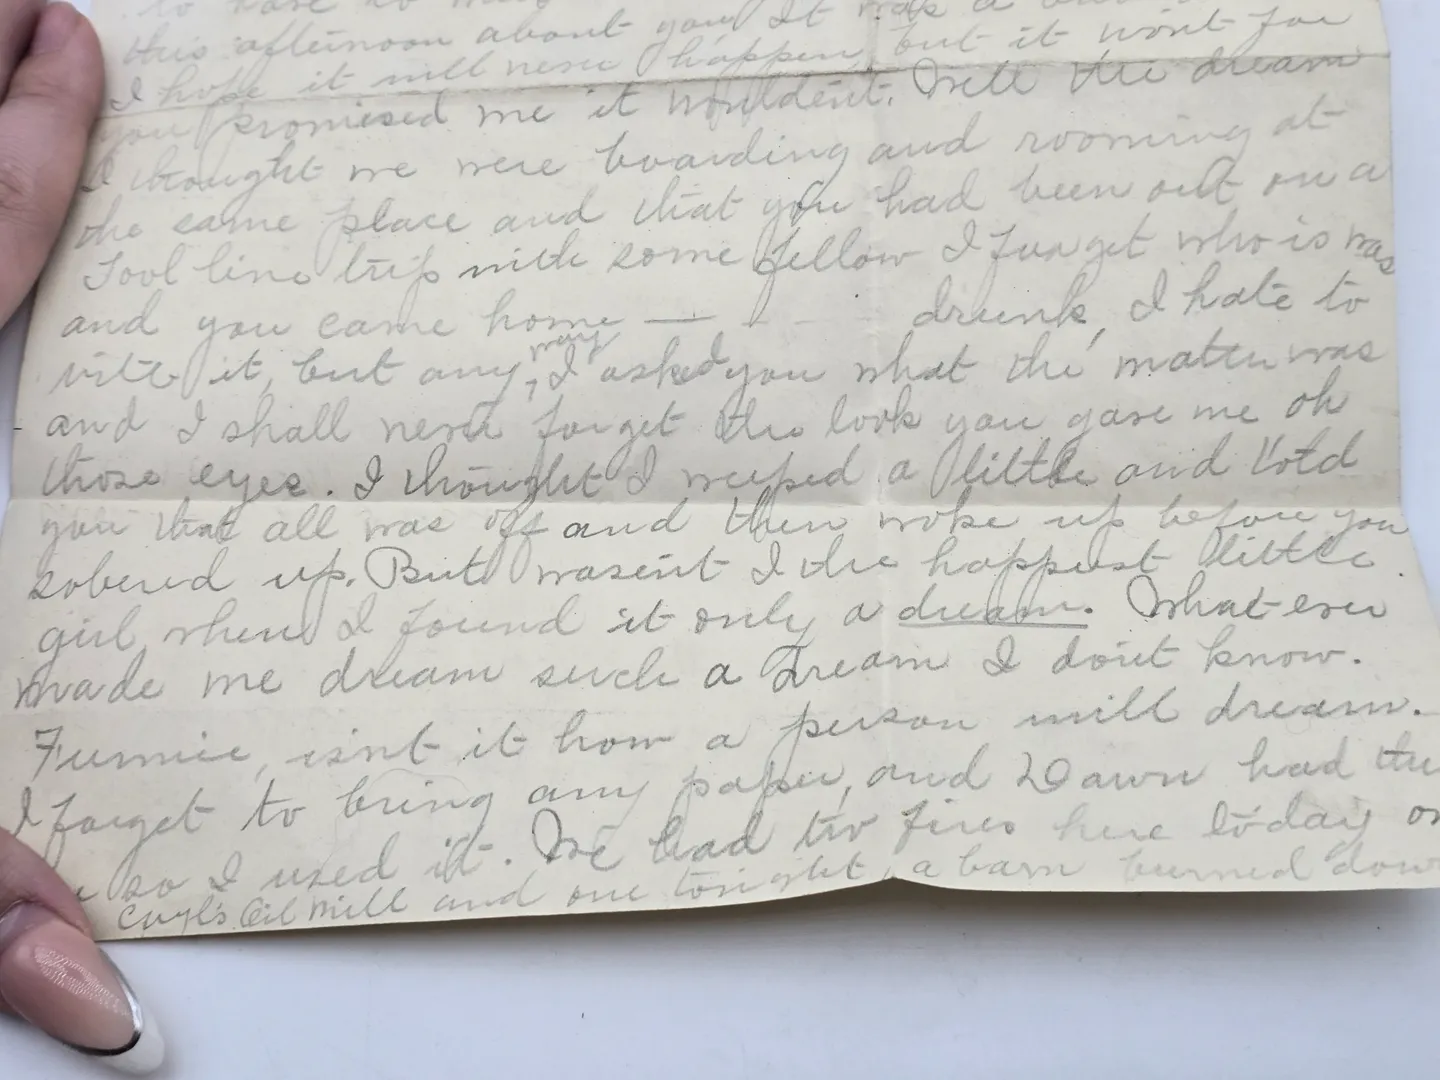 to have so may
this afternoon about you, It was a
I hope it will never happen, but it wont for
you promised me it wouldent. Well the dream
I thought we were boarding and rooming at
the same place and that you had been out on a
Tool line trip with some fellow I forget who is was
and you came home — - - drunk, I hate to
write it, but any way, I asked you what the matter was
and I shall never forget the look you gave me oh
those eyes. I thought I weeped a little and told
you that all was off and then woke up before you
sobered up. But wasen't I the happest little
girl when I found it only a dream. What ever
made me dream such a Dream I don't know.
Funnie, isn't it how a person will dream.
I forget to bring any paper, and Dawn had this
so I used it. We had two fires here to-day on
Oil Mill and one tonight, a barn burned down